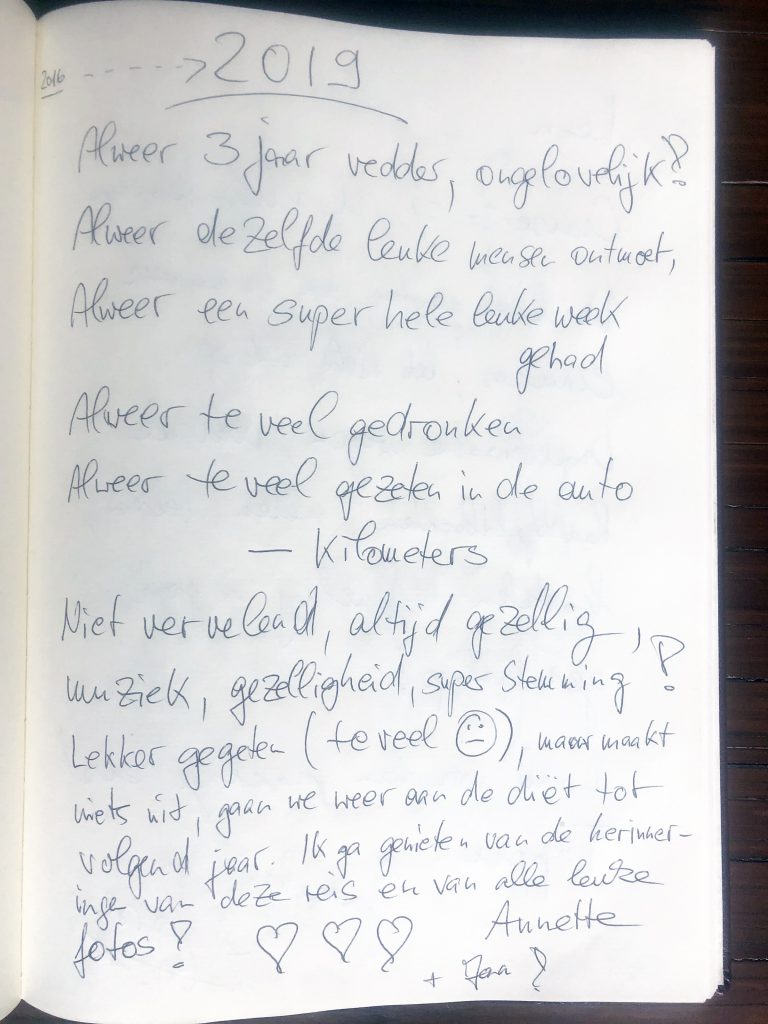 2016 - - - - -> 2019
Alweer 3 jaar vedder, ongelovelijk!
Alweer dezelfde leuke mensen ontmoet,
Alweer een super hele leuke week
gehad
Alweer te veel gedronken
Alweer te veel gezeten in de auto
— Kilometers
Niet vervelend, altijd gezellig,
muziek, gezelligheid, super Stemming!
Lekker gegeten (te veel 😐), maar maakt
niets uit, gaan we weer aan de diët tot
volgend jaar. Ik ga genieten van de herinner-
inge van deze reis en van alle leuke
fotos! ♡ ♡ ♡ Annette
+ !